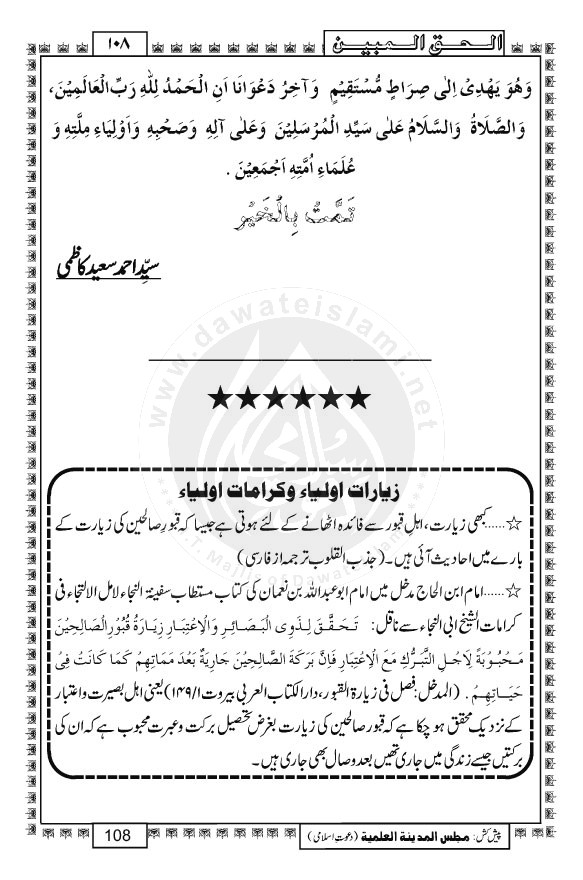 الـحـق الـمبيـن
۱۰۸
وَهُوَ يَهْدِىْ اِلٰى صِرَاطٍ مُّسْتَقِيْمٍ وَآخِرُ دَعْوَانَا اَنِ الْحَمْدُ لِلّٰهِ رَبِّ الْعَالَمِيْنَ،
وَالصَّلَاةُ وَالسَّلَامُ عَلٰى سَيِّدِ الْمُرْسَلِيْنَ وَعَلٰى آلِهٖ وَصَحْبِهٖ وَاَوْلِيَاءِ مِلَّتِهٖ وَ
عُلَمَاءِ اُمَّتِهٖ اَجْمَعِيْنَ .
تَمَّتْ بِالْخَيْر
سیِّد احمد سعید کاظمی
★★★★★★
زیارات اولیاء وکرامات اولیاء
☆......کبھی زیارت، اہلِ قبور سے فائدہ اٹھانے کے لئے ہوتی ہے جیسا کہ قبورِ صالحین کی زیارت کے
بارے میں احادیث آئی ہیں۔ (جذب القلوب ترجمہ از فارسی)
☆......امام ابن الحاج مدخل میں امام ابوعبداللہ بن نعمان کی کتاب مستطاب سفینۃ النجاء لاہل الالتجاء فی
کرامات الشیخ ابی النجاء سے ناقل: تَحَقَّقَ لِذَوِى الْبَصَائِرِ وَالْاِعْتِبَارِ زِيَارَةُ قُبُوْرِ الصَّالِحِيْنَ
مَحْبُوْبَةٌ لِاَجْلِ التَّبَرُّكِ مَعَ الْاِعْتِبَارِ فَاِنَّ بَرَكَةَ الصَّالِحِيْنَ جَارِيَةٌ بَعْدَ مَمَاتِهِمْ كَمَا كَانَتْ فِىْ
حَيَاتِهِمْ . (المدخل: فصل فی زیارۃ القبور، دارالکتاب العربی بیروت ۱/۱۴۹) یعنی اہل بصیرت واعتبار
کے نزدیک محقق ہو چکا ہے کہ قبورِ صالحین کی زیارت بغرض تحصیل برکت وعبرت محبوب ہے کہ ان کی
برکتیں جیسے زندگی میں جاری تھیں بعد وصال بھی جاری ہیں۔
پیش کش: مجلس المدینة العلمیة (دعوتِ اسلامی)
108
www.dawateislami.net